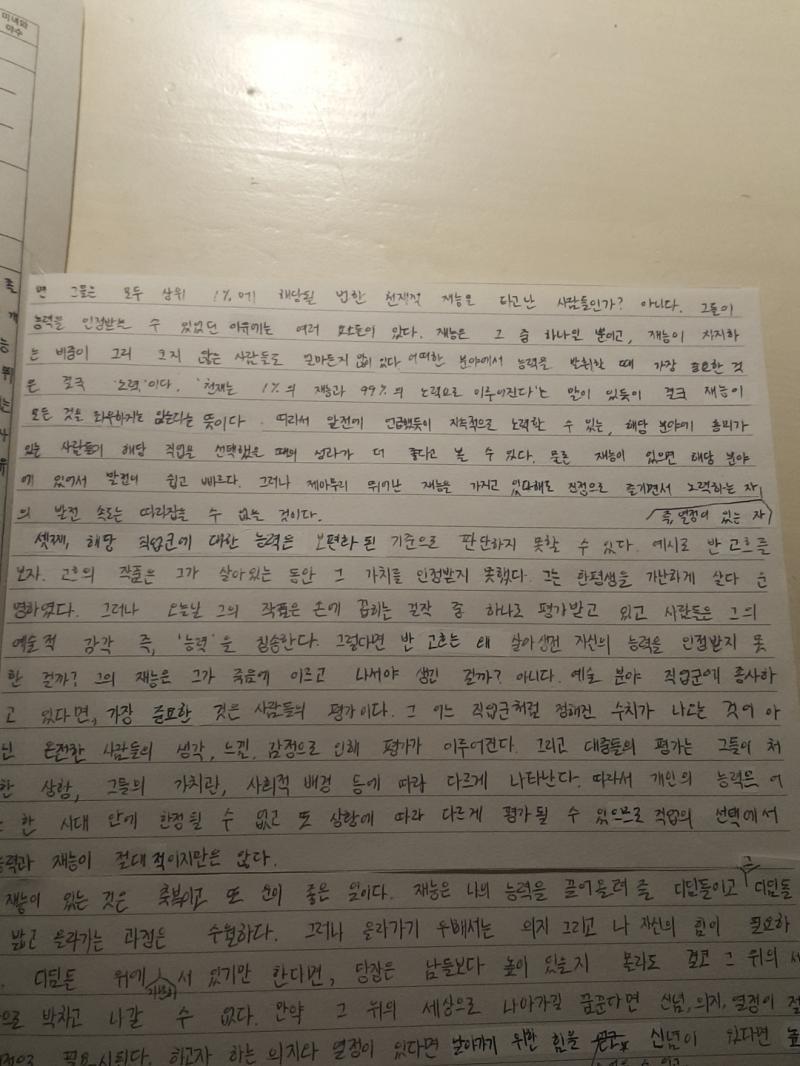 미녀와
야수
면 그들은 모두 상위 1%에 해당될 법한 천재적 재능을 타고난 사람들인가? 아니다. 그들이
능력을 인정받는 수 있었던 이유에는 여러 요소들이 있다. 재능은 그 중 하나일 뿐이고, 재능이 차지하
는 비중이 그리 크지 않은 사람들도 얼마든지 많이 있다. 어떠한 분야에서 능력을 발휘할 때 가장 중요한 것
은 결국 '노력'이다. '천재는 1%의 재능과 99%의 노력으로 이루어진다'는 말이 있듯이 결국 재능이
모든 것을 좌우하지는 않는다는 뜻이다. 따라서 앞전에 언급했듯이 지속적으로 노력할 수 있는, 해당 분야에 흥미가
있는 사람들이 해당 직업을 선택했을 때의 성과가 더 좋다고 볼 수 있다. 물론 재능이 있으면 해당 분야
에 있어서 발전이 쉽고 빠르다. 그러나 제아무리 뛰어난 재능을 가지고 있다해도 진정으로 즐기면서 노력하는 자
의 발전 속도는 따라잡을 수 없을 것이다. 즉, 열정이 있는 자
셋째, 해당 직업군에 대한 능력은 보편화 된 기준으로 판단하지 못할 수 있다. 예시로 반 고흐를
보자. 고흐의 작품은 그가 살아있는 동안 그 가치를 인정받지 못했다. 그는 한평생을 가난하게 살다 운
명하였다. 그러나 오늘날 그의 작품은 손에 꼽히는 걸작 중 하나로 평가받고 있고 사람들은 그의
예술적 감각 즉, '능력'을 칭송한다. 그렇다면 반 고흐는 왜 살아생전 자신의 능력을 인정받지 못
한 걸까? 그의 재능은 그가 죽음에 이르고 나서야 생긴 걸까? 아니다. 예술 분야 직업군에 종사하
고 있다면, 가장 중요한 것은 사람들의 평가이다. 그 어느 직업군처럼 정해진 수치가 나오는 것이 아
닌 온전한 사람들의 생각, 느낌, 감정으로 인해 평가가 이루어진다. 그리고 대중들의 평가는 그들이 처
한 상황, 그들의 가치관, 사회적 배경 등에 따라 다르게 나타난다. 따라서 개인의 능력은 어
는 한 시대 안에 한정될 수 없고 또 상황에 따라 다르게 평가될 수 있으므로 직업의 선택에서
능력과 재능이 절대적이지만은 않다.
재능이 있는 것은 축복이고 또 운이 좋은 일이다. 재능은 나의 능력을 끌어올려 줄 디딤돌이고 그 디딤돌
밟고 올라가는 과정은 수월하다. 그러나 올라가기 위해서는 의지 그리고 나 자신의 힘이 필요하
. 디딤돌 위에 가만히 서 있기만 한다면, 당장은 남들보다 높이 있을지 몰라도 결코 그 위의 세
으로 박차고 나갈 수 없다. 만약 그 위의 세상으로 나아가길 꿈꾼다면 신념, 의지, 열정이 절
적으로 필요시된다. 하고자 하는 의지와 열정이 있다면 날아가기 위한 힘을 신념이 있다면 높